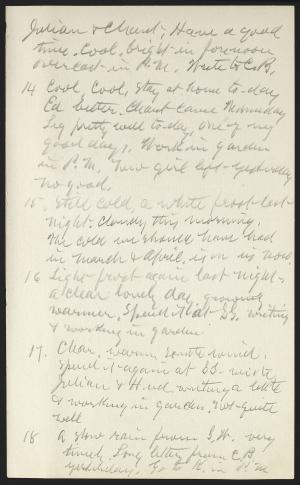 Julian & Chant; Have a good
time. Cool, bright in forenoon
overcast in P.M. Write to C.B.
14 Cool, Cool, stay at home to-day
Ed better. Chant came Wednesday
Leg pretty well to-day, one of my
good days. Work in garden
in P.M. New girl left yesterday
no good.
15. Still cold, a white frost last
night. Cloudy this morning.
The cold we should have had
in March & April, is on us now.
16 Light frost again last night.
a clear lovely day, growing
warmer. Spend it at SS. writing
& working in garden.
17. Clear, warm, gentle wind.
Spend it again at SS. with
Julian & Hud, writing a little
& working in garden. Not quite
well
18 A slow rain from S.W. very
timely. Long letter from C.B.
yesterday. Go to K. in P.M